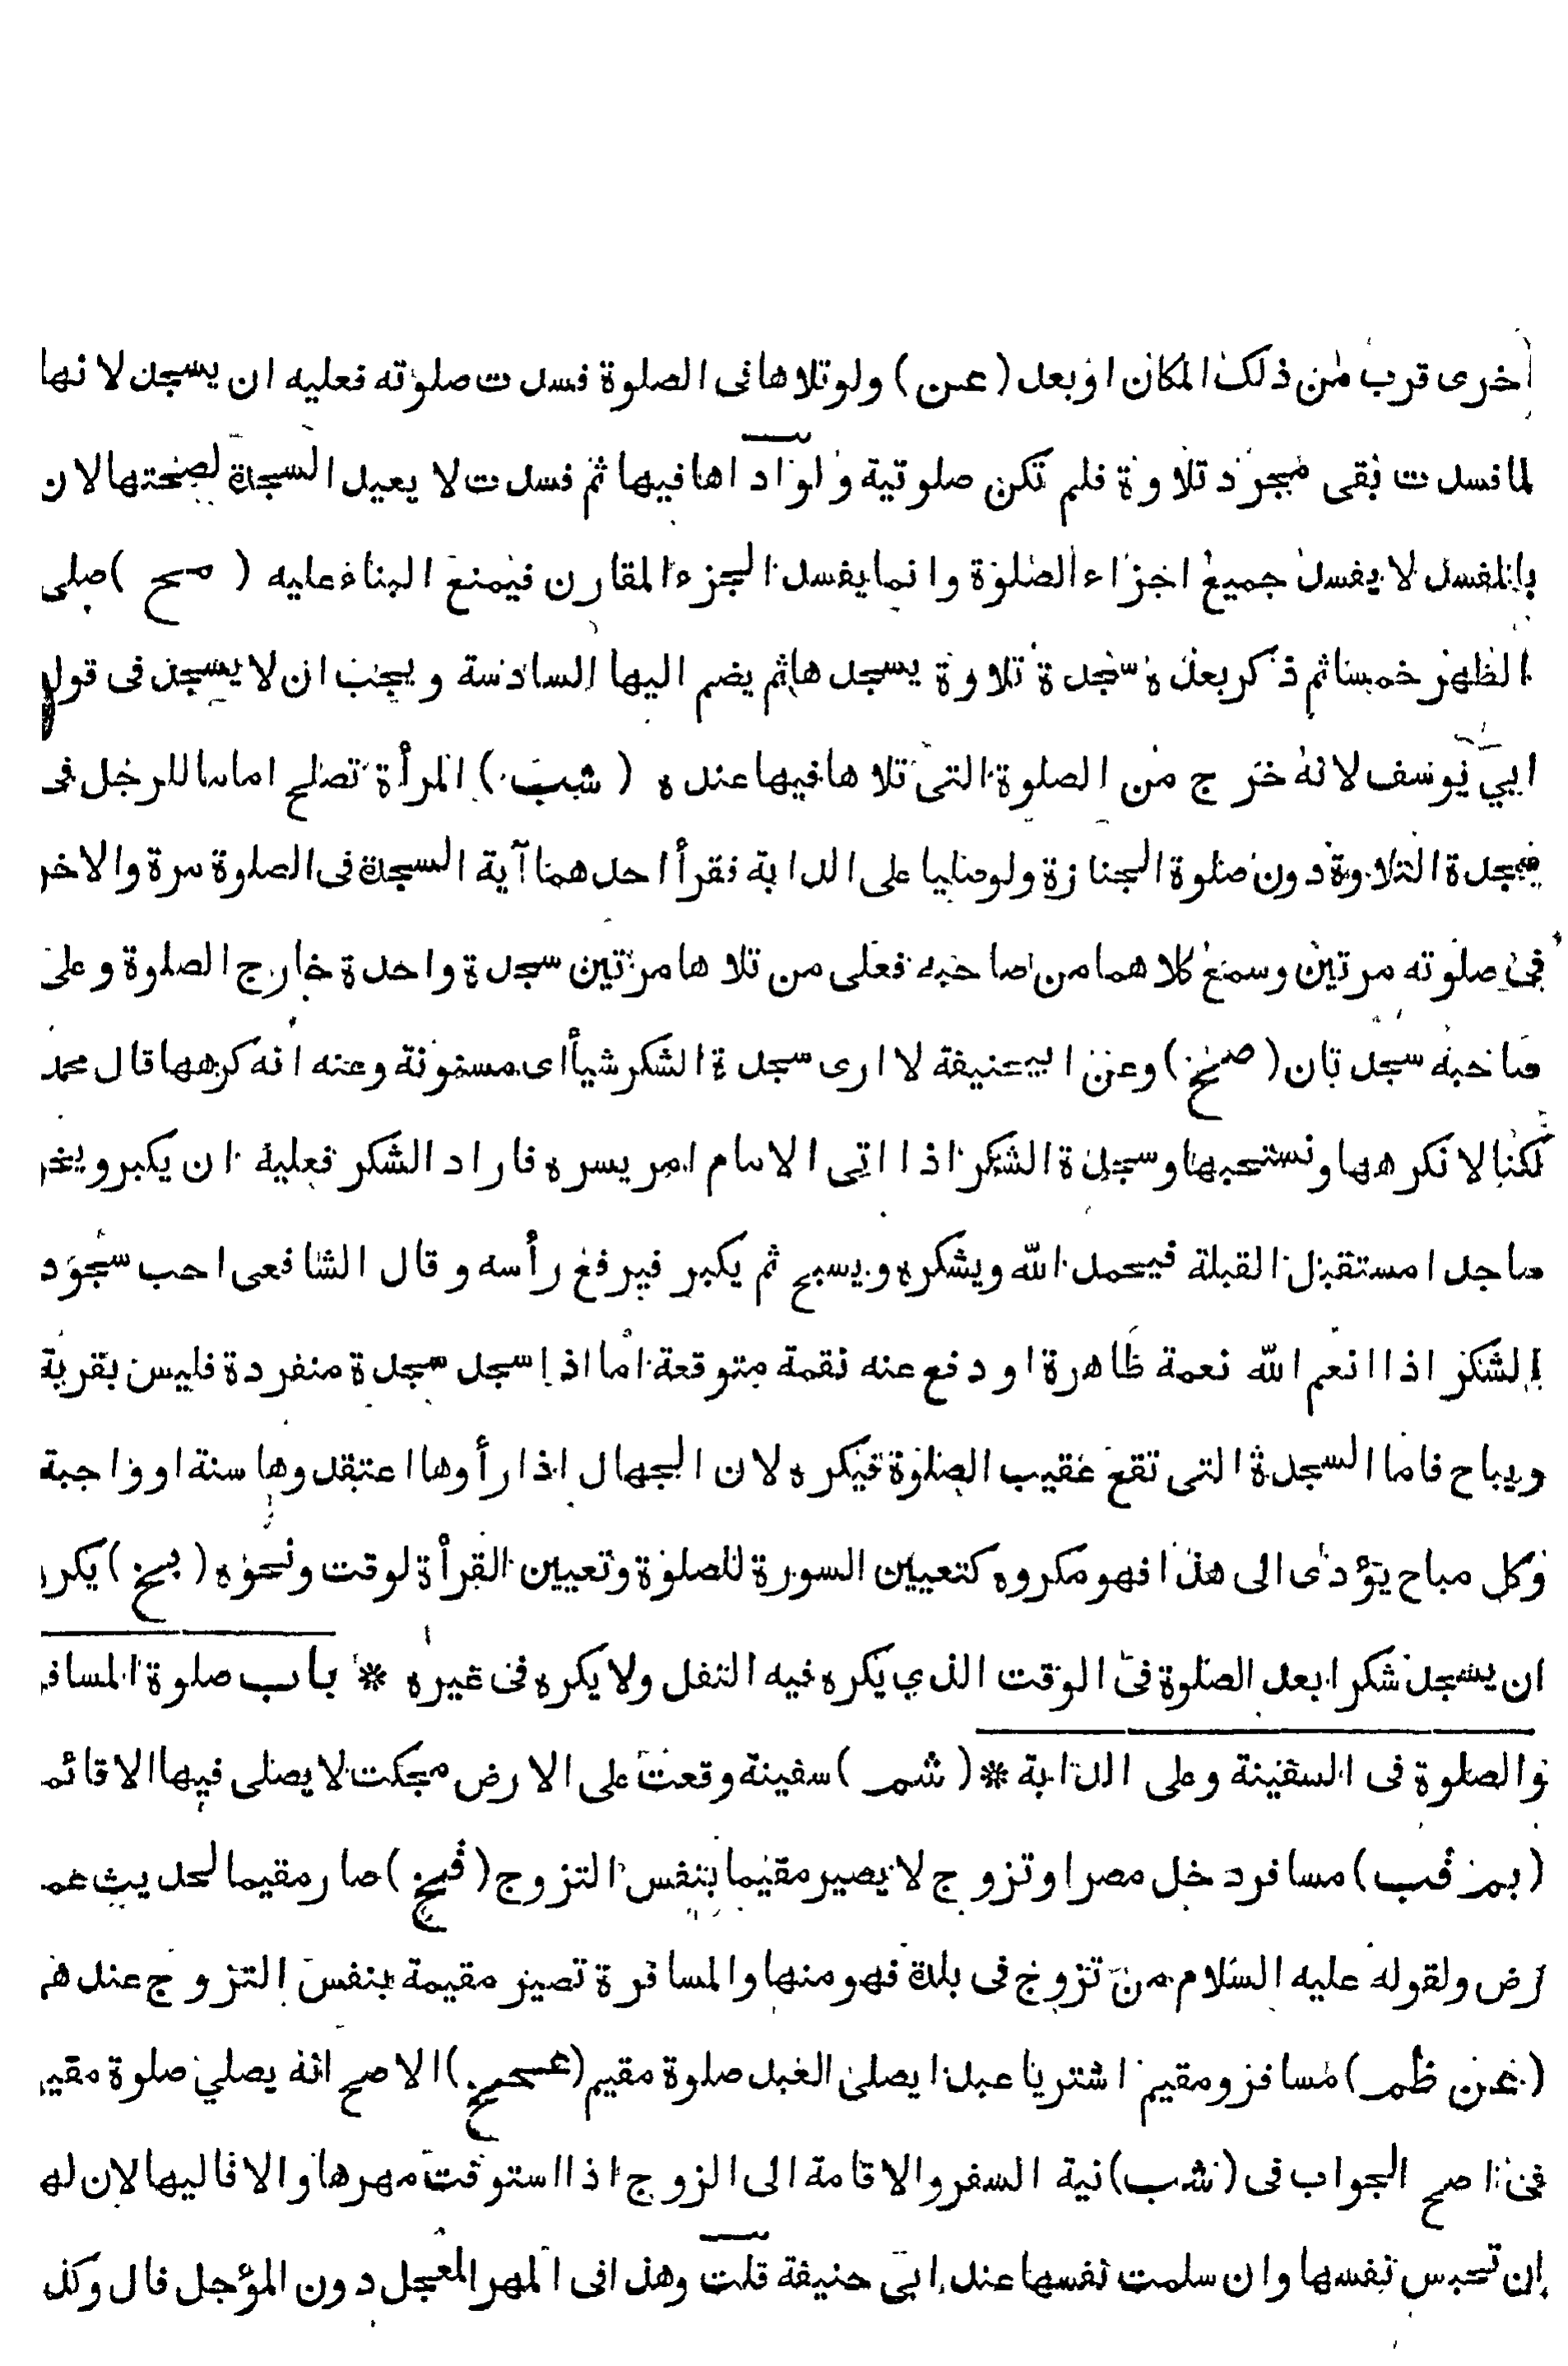 اخرى قرب من ذلك المكان او بعد (عن) ولو تلاها فى الصلوة فسدت صلوته فعليه ان يسجد لانها
لما فسدت بقى مجرد تلاوة فلم تكن صلوتية ولو اداها فيها ثم فسدت لا يعيد السجدة لصحتها لان
بالمفسد لا يفسد جميع اجزاء الصلوة وانما يفسد الجزء المقارن فيمنع البناء عليه (مح) صلى
الظهر خمسا ثم ذكر بعده سجدة تلاوة يسجدها ثم يضم اليها السادسة ويجب ان لا يسجد فى قول
ابي يوسف لانه خرج من الصلوة التى تلاها فيها عنده (شب) المرأة تصلح اماما للرجل فى
سجدة التلاوة دون صلوة الجنازة ولو صليا على الدابة فقرأ احدهما آية السجدة فى الصلوة مرة والاخر
فى صلوته مرتين وسمع كلاهما من صاحبه فعلى من تلاها مرتين سجدة واحدة خارج الصلوة وعلى
صاحبه سجدتان (صح) وعن ابيحنيفة لا ارى سجدة الشكر شيأ اى مسنونة وعنه انه كرهها قال محمد
لكنا لا نكرهها ونستحبها وسجدة الشكر اذا اتى الامام امر يسره فاراد الشكر فعليه ان يكبر ويخر
ساجدا مستقبل القبلة فيحمد الله ويشكره ويسبح ثم يكبر فيرفع رأسه وقال الشافعى احب سجود
الشكر اذا انعم الله نعمة ظاهرة او دفع عنه نقمة متوقعة اما اذا سجد سجدة منفردة فليس بقربة
ويباح فاما السجدة التى تقع عقيب الصلوة فيكره لان الجهال اذا رأوها اعتقدوها سنة او واجبة
وكل مباح يؤدى الى هذا فهو مكروه كتعيين السورة للصلوة وتعيين القرأة لوقت ونحوه (بخ) يكره
ان يسجد شكرا بعد الصلوة فى الوقت الذي يكره فيه النفل ولا يكره فى غيره * باب صلوة المسافر
والصلوة فى السفينة وعلى الدابة * (شم) سفينة وقعت على الارض مجكت لا يصلى فيها الا قائما
(بم قب) مسافر دخل مصرا وتزوج لا يصير مقيما بنفس التزوج (فخ) صار مقيما لحديث عمر
رض ولقوله عليه السلام من تزوج فى بلدة فهو منها والمسافرة تصير مقيمة بنفس التزوج عندهم
(عن ظم) مسافر ومقيم اشتريا عبدا يصلى العبد صلوة مقيم (عسحج) الاصح انه يصلي صلوة مقيم
فى اصح الجواب فى (شب) نية السفر والاقامة الى الزوج اذا استوفت مهرها والا فاليها لان لها
ان تحبس نفسها وان سلمت نفسها عند ابى حنيفة قلت وهذا فى المهر المعجل دون المؤجل قال وكذ